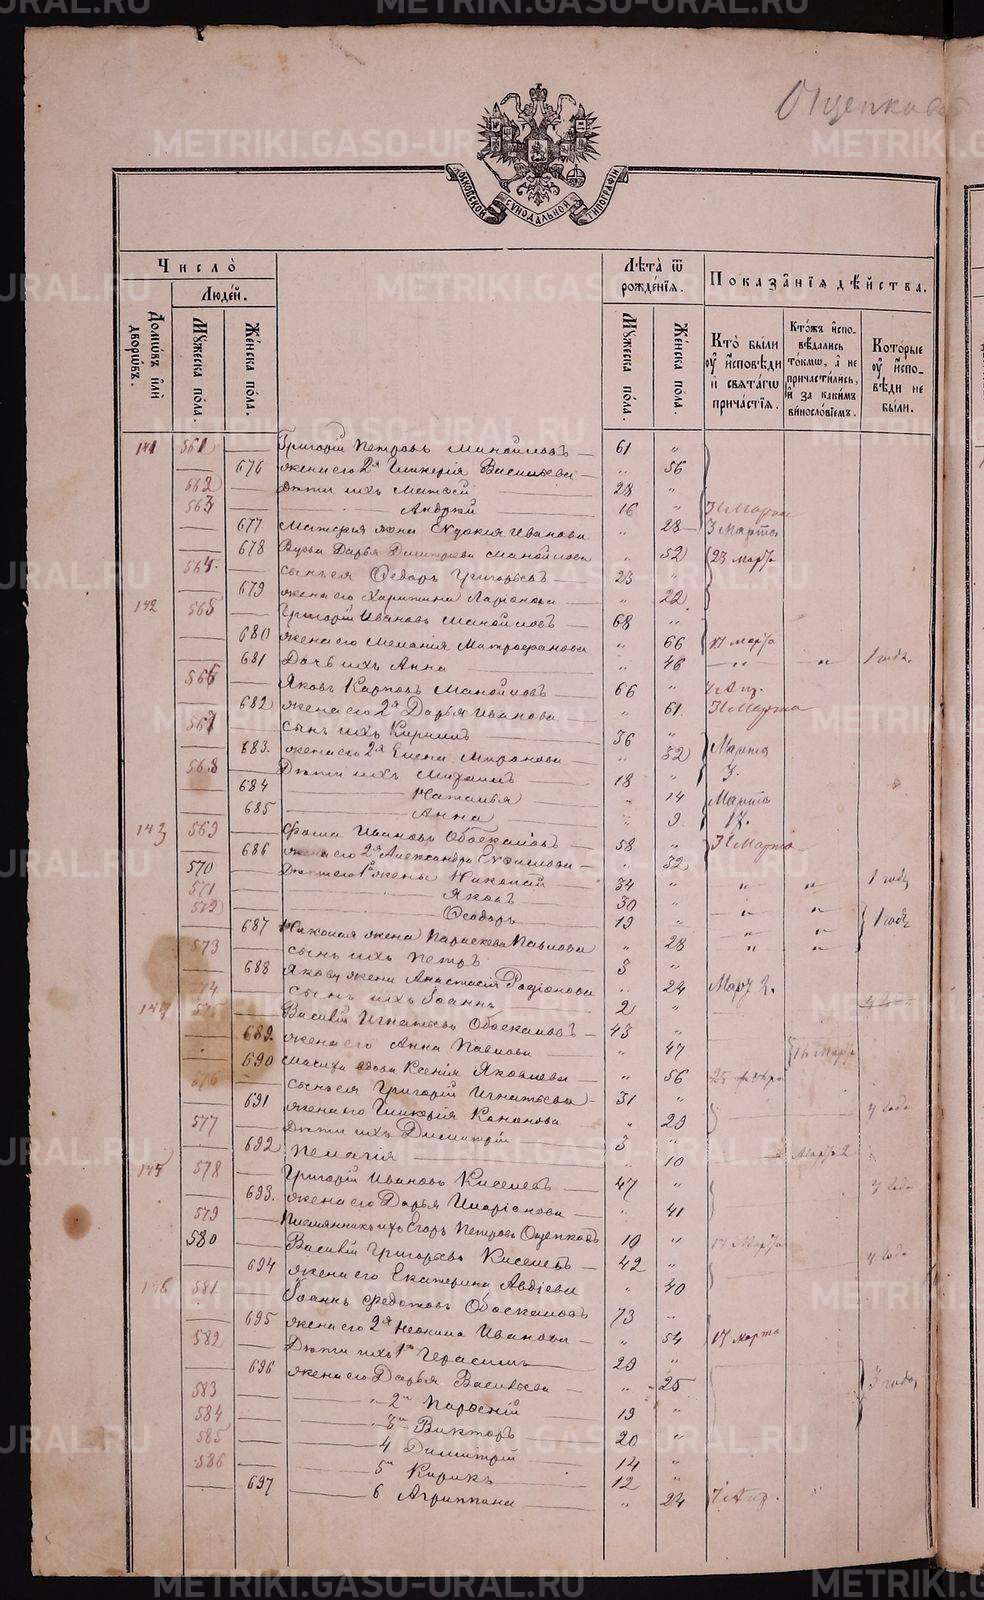 Ощепкова
МОСКОВСКОЙ СѴНОДАЛЬНОЙ ТИПОГРАФІИ
Число̀
Люде́й.
Домѡ́въ и҆лѝ дворѡ́въ.
Мꙋ́жеска по́ла.
Же́нска по́ла.
Лѣ́та ѿ рожде́нїѧ.
Мꙋ́жеска по́ла.
Же́нска по́ла.
Показа̑нїѧ дѣ́йства.
Кто̀ бы́ли ᲂу҆ и҆сповѣ́ди и҆ свѧта́гѡ прича́стїѧ.
Кто́жъ и҆спо-вѣ́дались то́кмѡ, а҆ не причасти́лись, и҆ за каки́мъ виносло́вїемъ.
Кото́рые ᲂу҆ и҆спо-вѣ́ди не бы́ли.
141 561 Григорій Петровъ Маноиловъ 61 "
676 жена его 2я Гликерія Васильева " 56
562 дѣти ихъ Матвей 28 "
563 Андрей 16 "
677 Матфея жена Евдокия Иванова " 28 3 Марта
678 Вдова Дарья Димитріева Маноилова " 52 23 марта
564 сынъ ея Федоръ Григорьевъ 23 "
679 жена его Харитина Ларіонова " 22
142 565 Григорій Ивановъ Маноиловъ 68 "
680 жена его Мелания Митрофанова " 66 17 марта
681 Дочь ихъ Анна " 46 " " 1 года.
566 Яковъ Карповъ Маноиловъ 66 "
682 жена его 2я Дарья Иванова " 61 Марта
567 сынъ ихъ Кирилъ 36 "
683. жена его 2я Елена Миронова " 32 Марта
568 Дѣти ихъ Михаилъ 18 " 3.
684 Наталья " 14 Марта
685 Анна " 9 17.
143 569 Фома Ивановъ Обоскаловъ 58 " Марта
686 жена его 2я Александра Евфимова " 32
570 Дѣти его 1й жены Николай 34 " " " 1 годъ
571 Яковъ 30 " " "
572 Ѳеодоръ 19 " " " 1 годъ
687 Николая жена Параскева Павлова " 28 " "
573 сынъ ихъ Петръ 3 "
688 Якова жена Анастасія Родіонова " 24 Март 2.
574 сынъ ихъ Іоаннъ 2 "
144 Василій Игнатьевъ Обоскаловъ 43 "
689. жена его Анна Павлова " 47 Март
690 мачиха вдова Ксенія Яковлева " 56 25 февра
576 сынъ ея Григорій Игнатьевъ 31 "
691 жена его Гликерія Кононова " 29 4 года
577 Дѣти ихъ Димитрій 3 "
692 Пелагія " 10 Март 2
145 578 Григорій Ивановъ Киселевъ 47 " 4 года
693. жена его Дарья Иларіонова " 41
579 Племянникъ ихъ Егоръ Петровъ Ощепковъ 19 " 17 Марта
580 Василій Григорьевъ Киселевъ 42 " 4 года
694 жена его Екатерина Авдіева " 40
146 581 Іоаннъ Федотовъ Обоскаловъ 73 "
695 жена его 2я Неонила Иванова " 54 17 марта
582 Дѣти ихъ 1й Герасимъ 29 "
696 жена его Дарья Васильева " 25 3 года
583 2й Парфеній 19 "
584 3й Викторъ 20 "
585 4 Димитрій 14 "
586 5й Кирикъ 12 "
697 6 Агриппина " 24
METRIKI.GASO-URAL.RU